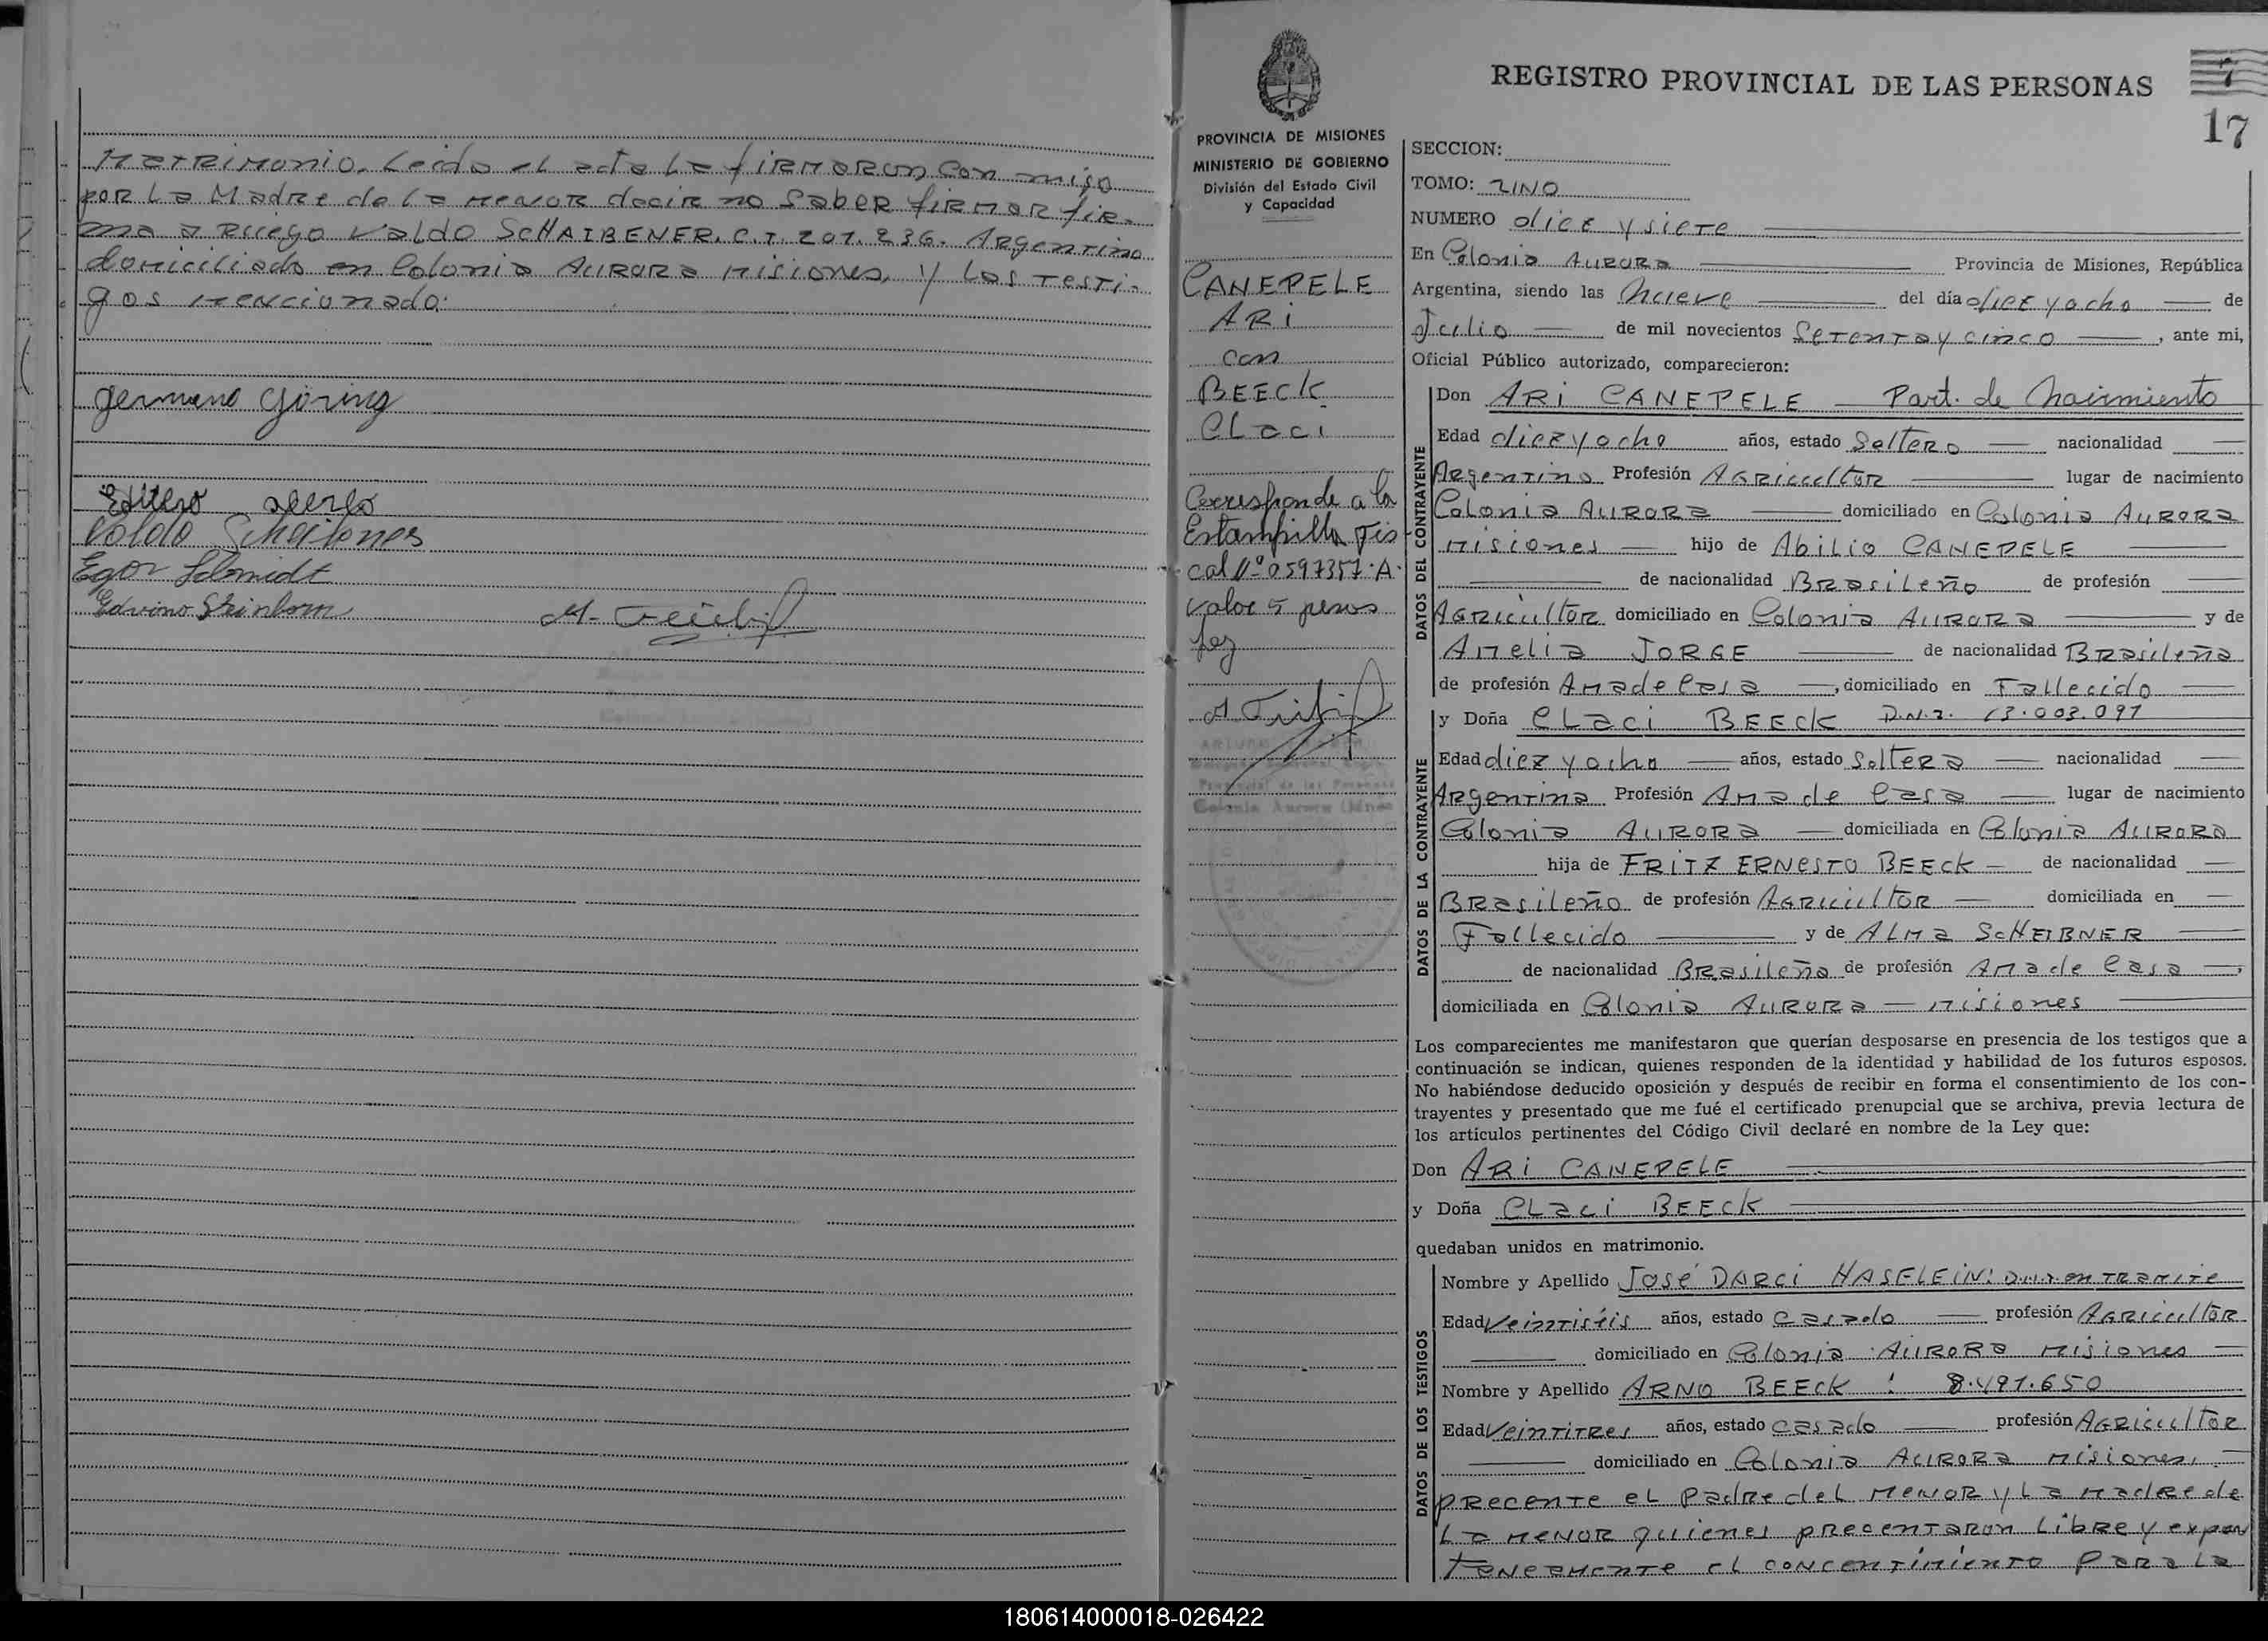 Matrimonio. Leida el acta la firmaron con migo
por la Madre de la menor decir no saber firmar fir-
ma a Ruego Valdo SCHAIBENER. C.I. 201.236. Argentino
domiciliado en Colonia Aurora Misiones, y los testi-
gos mencionado:
germano Göring
Valdo
Egon Schmidt
Edvino Steinborn
PROVINCIA DE MISIONES
MINISTERIO DE GOBIERNO
División del Estado Civil
y Capacidad
CANEPELE
ARI
con
BEECK
Claci
Corresponde a la
Estampilla Fis
cal Nº 0597357-A-
valor 5 pesos
ley
Colonia Aurora
REGISTRO PROVINCIAL DE LAS PERSONAS
7
17
SECCION:
TOMO: UNO
NUMERO diez y siete
En Colonia Aurora Provincia de Misiones, República
Argentina, siendo las Nueve del día diez y ocho de
Julio de mil novecientos Setenta y cinco, ante mi,
Oficial Público autorizado, comparecieron:
DATOS DEL CONTRAYENTE
Don ARI CANEPELE Part. de Nacimiento
Edad diez y ocho años, estado Soltero nacionalidad
Argentino Profesión Agricultor lugar de nacimiento
Colonia Aurora domiciliado en Colonia Aurora
Misiones hijo de Abilio CANEPELE
de nacionalidad Brasileño de profesión
Agricultor domiciliado en Colonia Aurora y de
Amelia JORGE de nacionalidad Brasileña
de profesión Ama de Casa, domiciliado en Fallecido
DATOS DE LA CONTRAYENTE
y Doña Claci BEECK D.N.I. 13.003.097
Edad diez y ocho años, estado Soltera nacionalidad
Argentina Profesión Ama de Casa lugar de nacimiento
Colonia Aurora domiciliada en Colonia Aurora
hija de FRITZ ERNESTO BEECK de nacionalidad
Brasileño de profesión Agricultor domiciliada en
Fallecido y de ALMA SCHEIBNER
de nacionalidad Brasileña de profesión Ama de Casa,
domiciliada en Colonia Aurora - Misiones
Los comparecientes me manifestaron que querían desposarse en presencia de los testigos que a
continuación se indican, quienes responden de la identidad y habilidad de los futuros esposos.
No habiéndose deducido oposición y después de recibir en forma el consentimiento de los con-
trayentes y presentado que me fué el certificado prenupcial que se archiva, previa lectura de
los artículos pertinentes del Código Civil declaré en nombre de la Ley que:
Don ARI CANEPELE
y Doña Claci BEECK
quedaban unidos en matrimonio.
DATOS DE LOS TESTIGOS
Nombre y Apellido José DARCI HASELEIN: D.N.I. en tramite
Edad Veintiséis años, estado casado profesión Agricultor
domiciliado en Colonia Aurora Misiones
Nombre y Apellido ARNO BEECK: 8.491.650
Edad Veintitres años, estado casado profesión Agricultor
domiciliado en Colonia Aurora Misiones.
precente el Padre del menor y la madre de
la menor quienes precentaron libre y expon
taneamente el concentimiento para la
180614000018-026422